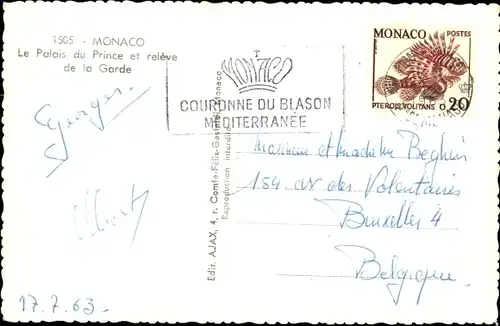 1505 - MONACO
Le Palais du Prince et relève
de la Garde
MONACO
COURONNE DU BLASON
MEDITERRANÉE
MONACO
POSTES
PTEROIS VOLITANS
0,20
Georges
Albert
Edit. AJAX, 4, r. Comte-Félix-Gastaldi, Monaco
Reproduction interdite
Monsieur et Madame Beghin
184 av des Volontaires
Bruxelles 4
Belgique
17.7.63.